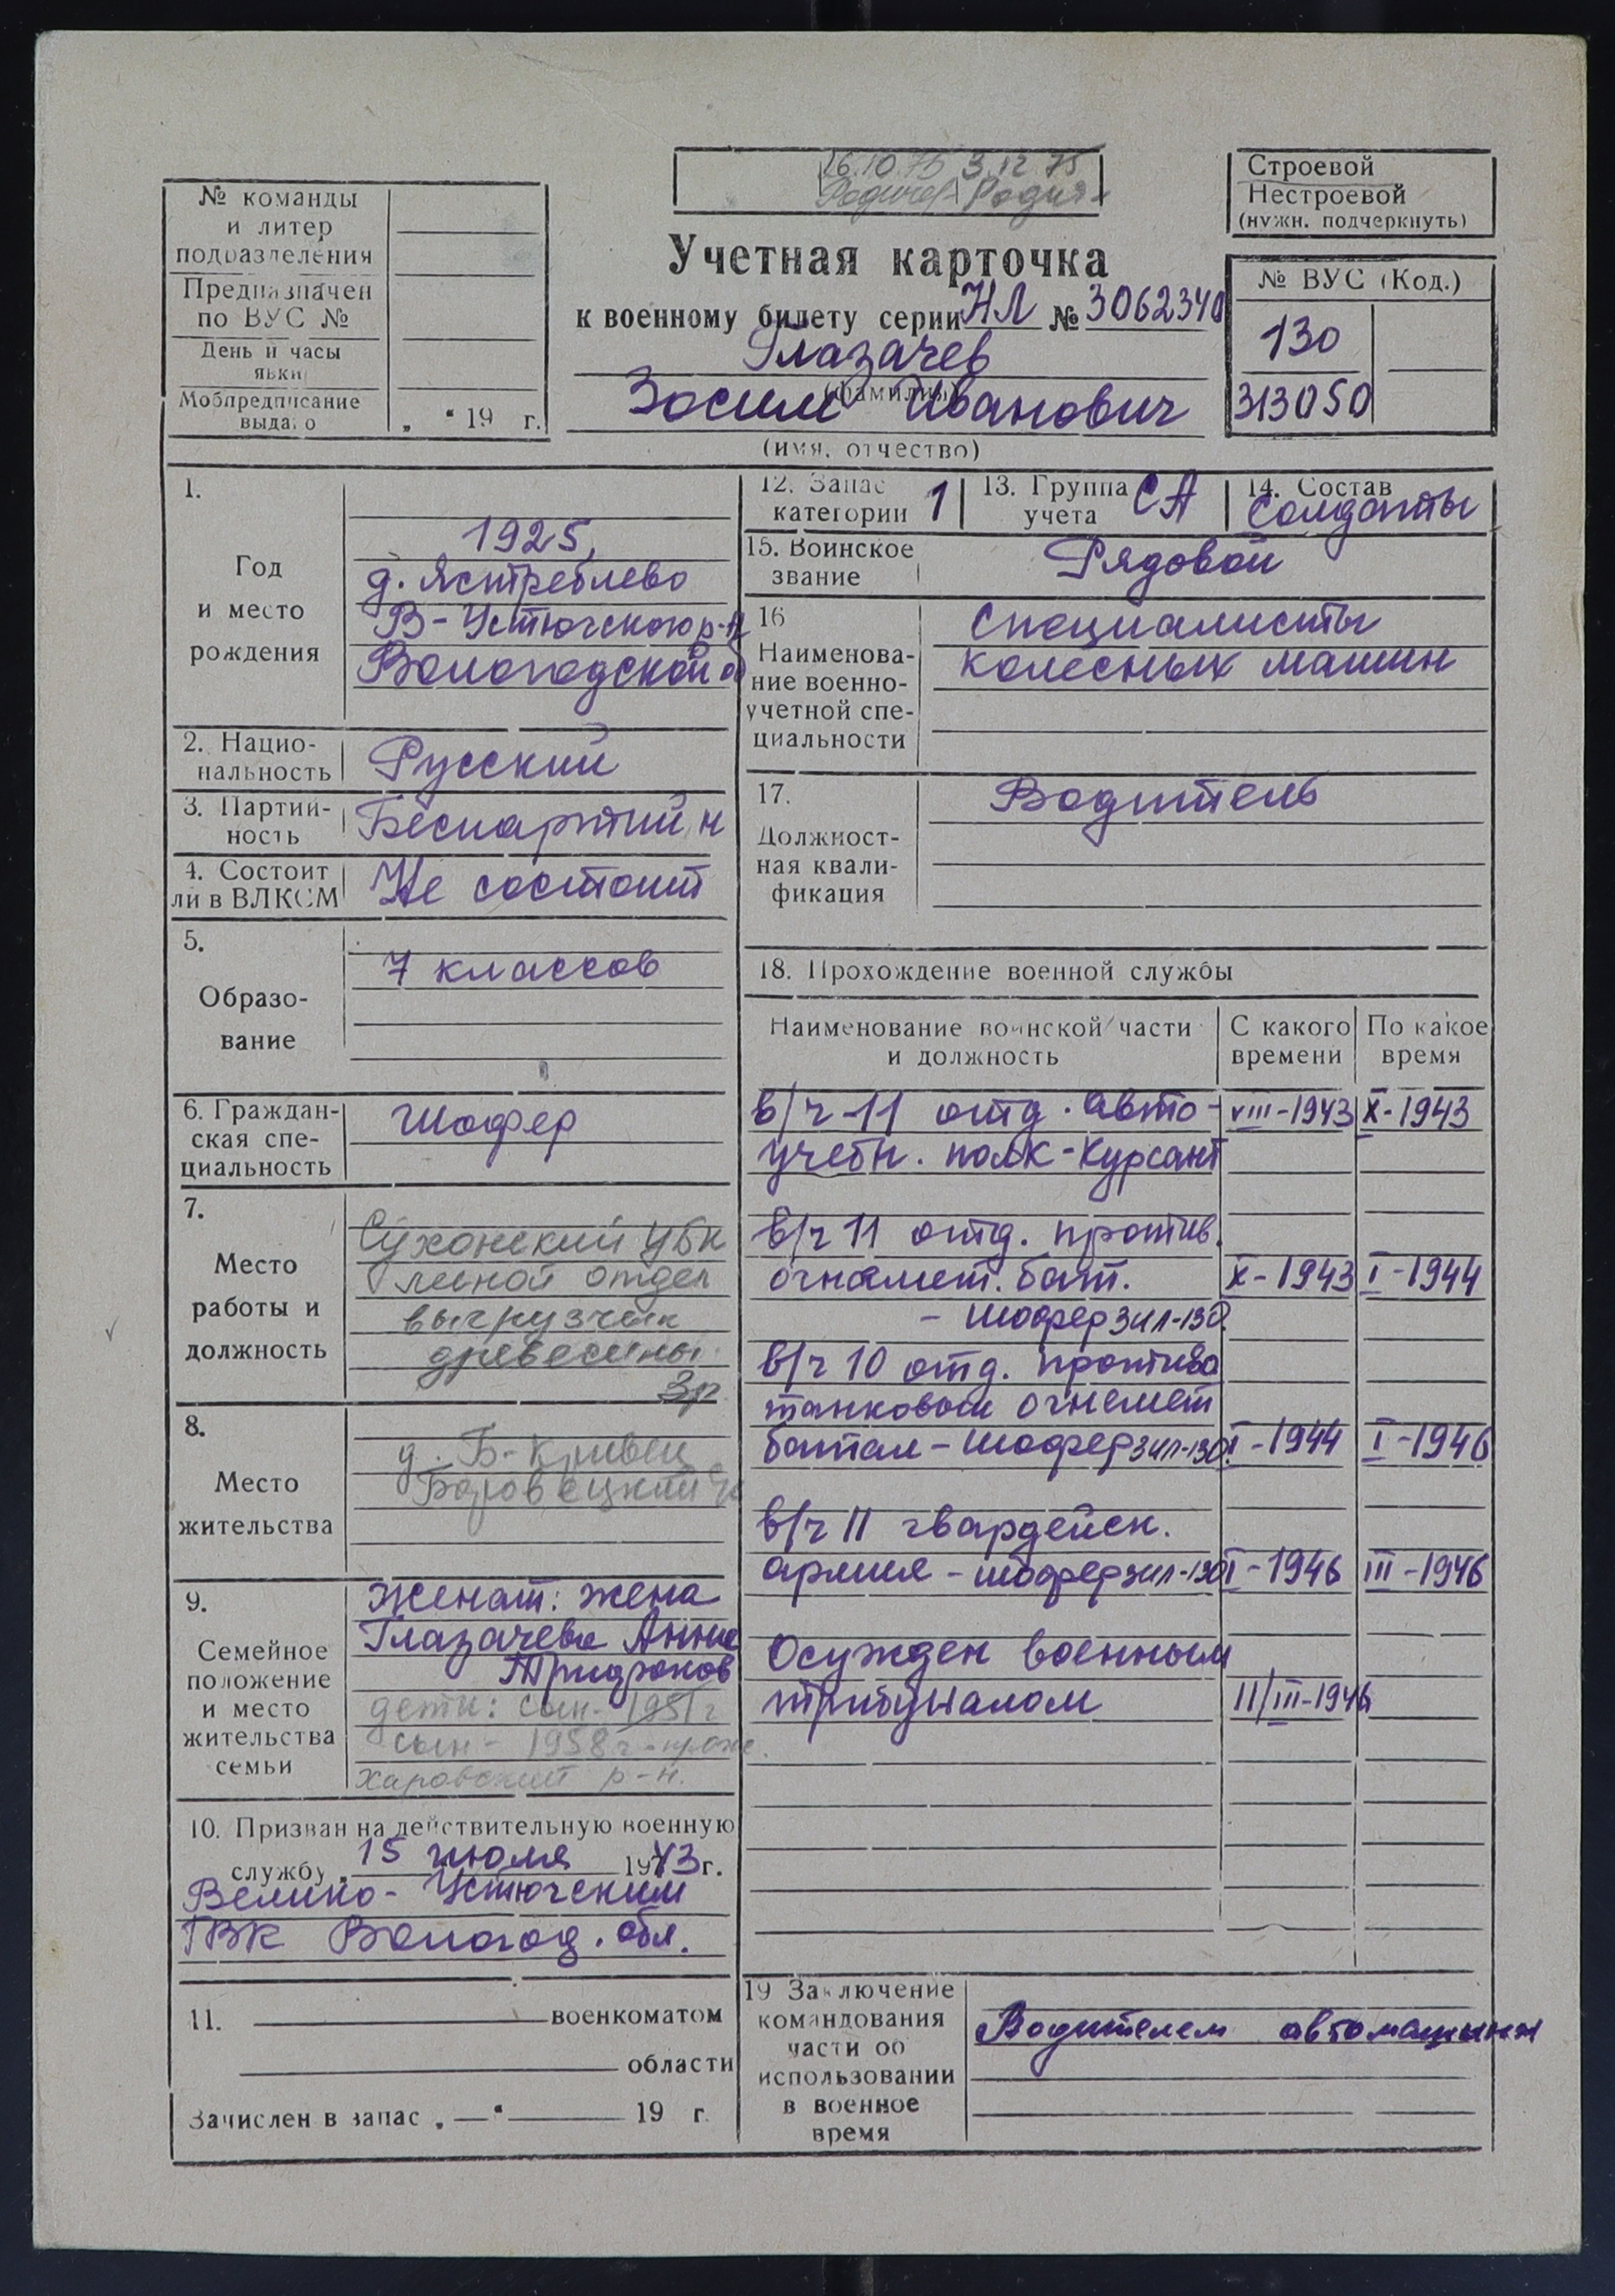 16.10.75 3.12.75
№ команды
и литер
подразделения
Предназначен
по ВУС №
День и часы
явки
Мобпредписание
выдано „ “ 19 г.
Строевой
Нестроевой
(нужн. подчеркнуть)
Учетная карточка
к военному билету серии НЛ № 3062340
Глазачев
(фамилия)
Зосим Иванович
(имя, отчество)
№ ВУС (Код.)
130
313050
1.
Год
и место
рождения
1925,
д. Ястреблево
В-Устюгского р-н
Вологодской об
2. Нацио-
нальность
Русский
3. Партий-
ность
Беспартийн
4. Состоит
ли в ВЛКСМ
Не состоит
5.
Образо-
вание
7 классов
6. Граждан-
ская спе-
циальность
Шофер
7.
Место
работы и
должность
Сухонский ЦБК
лесной отдел
выгрузчик
древесины
3р
8.
Место
жительства
д. Б-Кривец
Боровецкий
9.
Семейное
положение
и место
жительства
семьи
Женат: жена
Глазачева Анна
дети: сын-1951г
сын-1958г-
Харовский р-н.
10. Призван на действительную военную
службу „ 15 июля 1943 г.
Велико-Устюгским
ГВК Вологод. обл.
11. военкоматом
области
Зачислен в запас „—“ 19 г.
12. Запас
категории 1
13. Группа
учета СА
14. Состав
солдаты
15. Воинское
звание
Рядовой
16
Наименова-
ние военно-
учетной спе-
циальности
Специалисты
колесных машин
17.
Должност-
ная квали-
фикация
Водитель
18. Прохождение военной службы
Наименование воинской части
и должность
С какого
времени
По какое
время
в/ч-11 отд. авто- VIII-1943 X-1943
учебн. полк-Курсант
в/ч 11 отд. против.
огнемет. бат. X-1943 I-1944
- шофер ЗИЛ-130.
в/ч 10 отд. противо
танковый огнемет
батал-шофер ЗИЛ-130. I-1944 I-1946
в/ч 11 гвардейск.
армия-шофер ЗИЛ-130 I-1946 III-1946
Осужден военным
трибуналом 11/III-1946
19 Заключение
командования
части об
использовании
в военное
время
Водителем автомашины